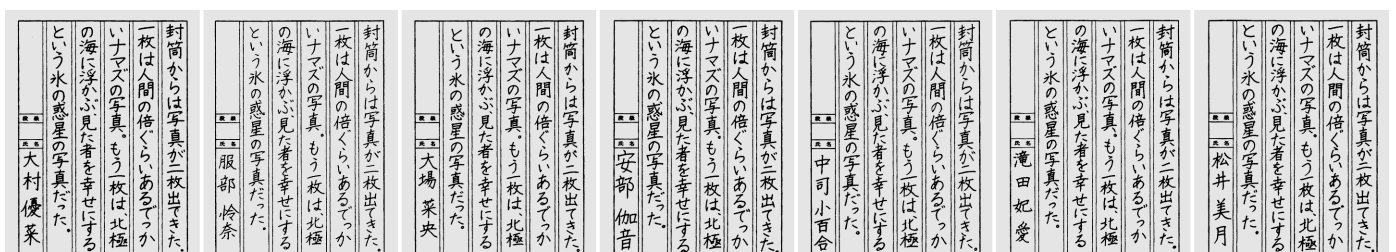 封筒からは写真が二枚出てきた。
一枚は人間の倍ぐらいあるでっか
いナマズの写真。もう一枚は、北極
の海に浮かぶ、見た者を幸せにする
という氷の惑星の写真だった。
段級
氏名 大村優菜
封筒からは写真が二枚出てきた。
一枚は人間の倍ぐらいあるでっか
いナマズの写真。もう一枚は、北極
の海に浮かぶ、見た者を幸せにする
という氷の惑星の写真だった。
段級
氏名 服部怜奈
封筒からは写真が二枚出てきた。
一枚は人間の倍ぐらいあるでっか
いナマズの写真。もう一枚は、北極
の海に浮かぶ、見た者を幸せにする
という氷の惑星の写真だった。
段級
氏名 大場菜央
封筒からは写真が二枚出てきた。
一枚は人間の倍ぐらいあるでっか
いナマズの写真。もう一枚は、北極
の海に浮かぶ、見た者を幸せにする
という氷の惑星の写真だった。
段級
氏名 安部伽音
封筒からは写真が二枚出てきた。
一枚は人間の倍ぐらいあるでっか
いナマズの写真。もう一枚は、北極
の海に浮かぶ、見た者を幸せにする
という氷の惑星の写真だった。
段級
氏名 中司小百合
封筒からは写真が二枚出てきた。
一枚は人間の倍ぐらいあるでっか
いナマズの写真。もう一枚は、北極
の海に浮かぶ、見た者を幸せにする
という氷の惑星の写真だった。
段級
氏名 滝田妃愛
封筒からは写真が二枚出てきた。
一枚は人間の倍ぐらいあるでっか
いナマズの写真。もう一枚は、北極
の海に浮かぶ、見た者を幸せにする
という氷の惑星の写真だった。
段級
氏名 松井美月